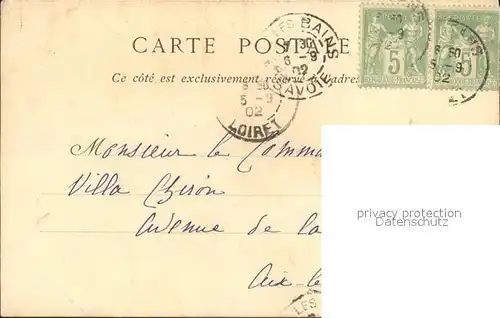 CARTE POSTALE
Ce côté est exclusivement réservé à l'adres
LES BAINS
6 30
6 -9
02
SAVOIE
6 50
5 -9
02
LOIRET
5
5
6 50
5 -9
02
Monsieur le Comma
Villa Chiron
Avenue de la
Aix-le
privacy protection
Datenschutz
LES